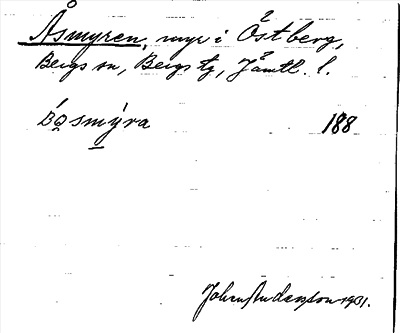 Åsmyren, myr i Östberg,
Bergs sn, Bergs tg, Jämtl. l.
smýra 188
John Andersson 1931.